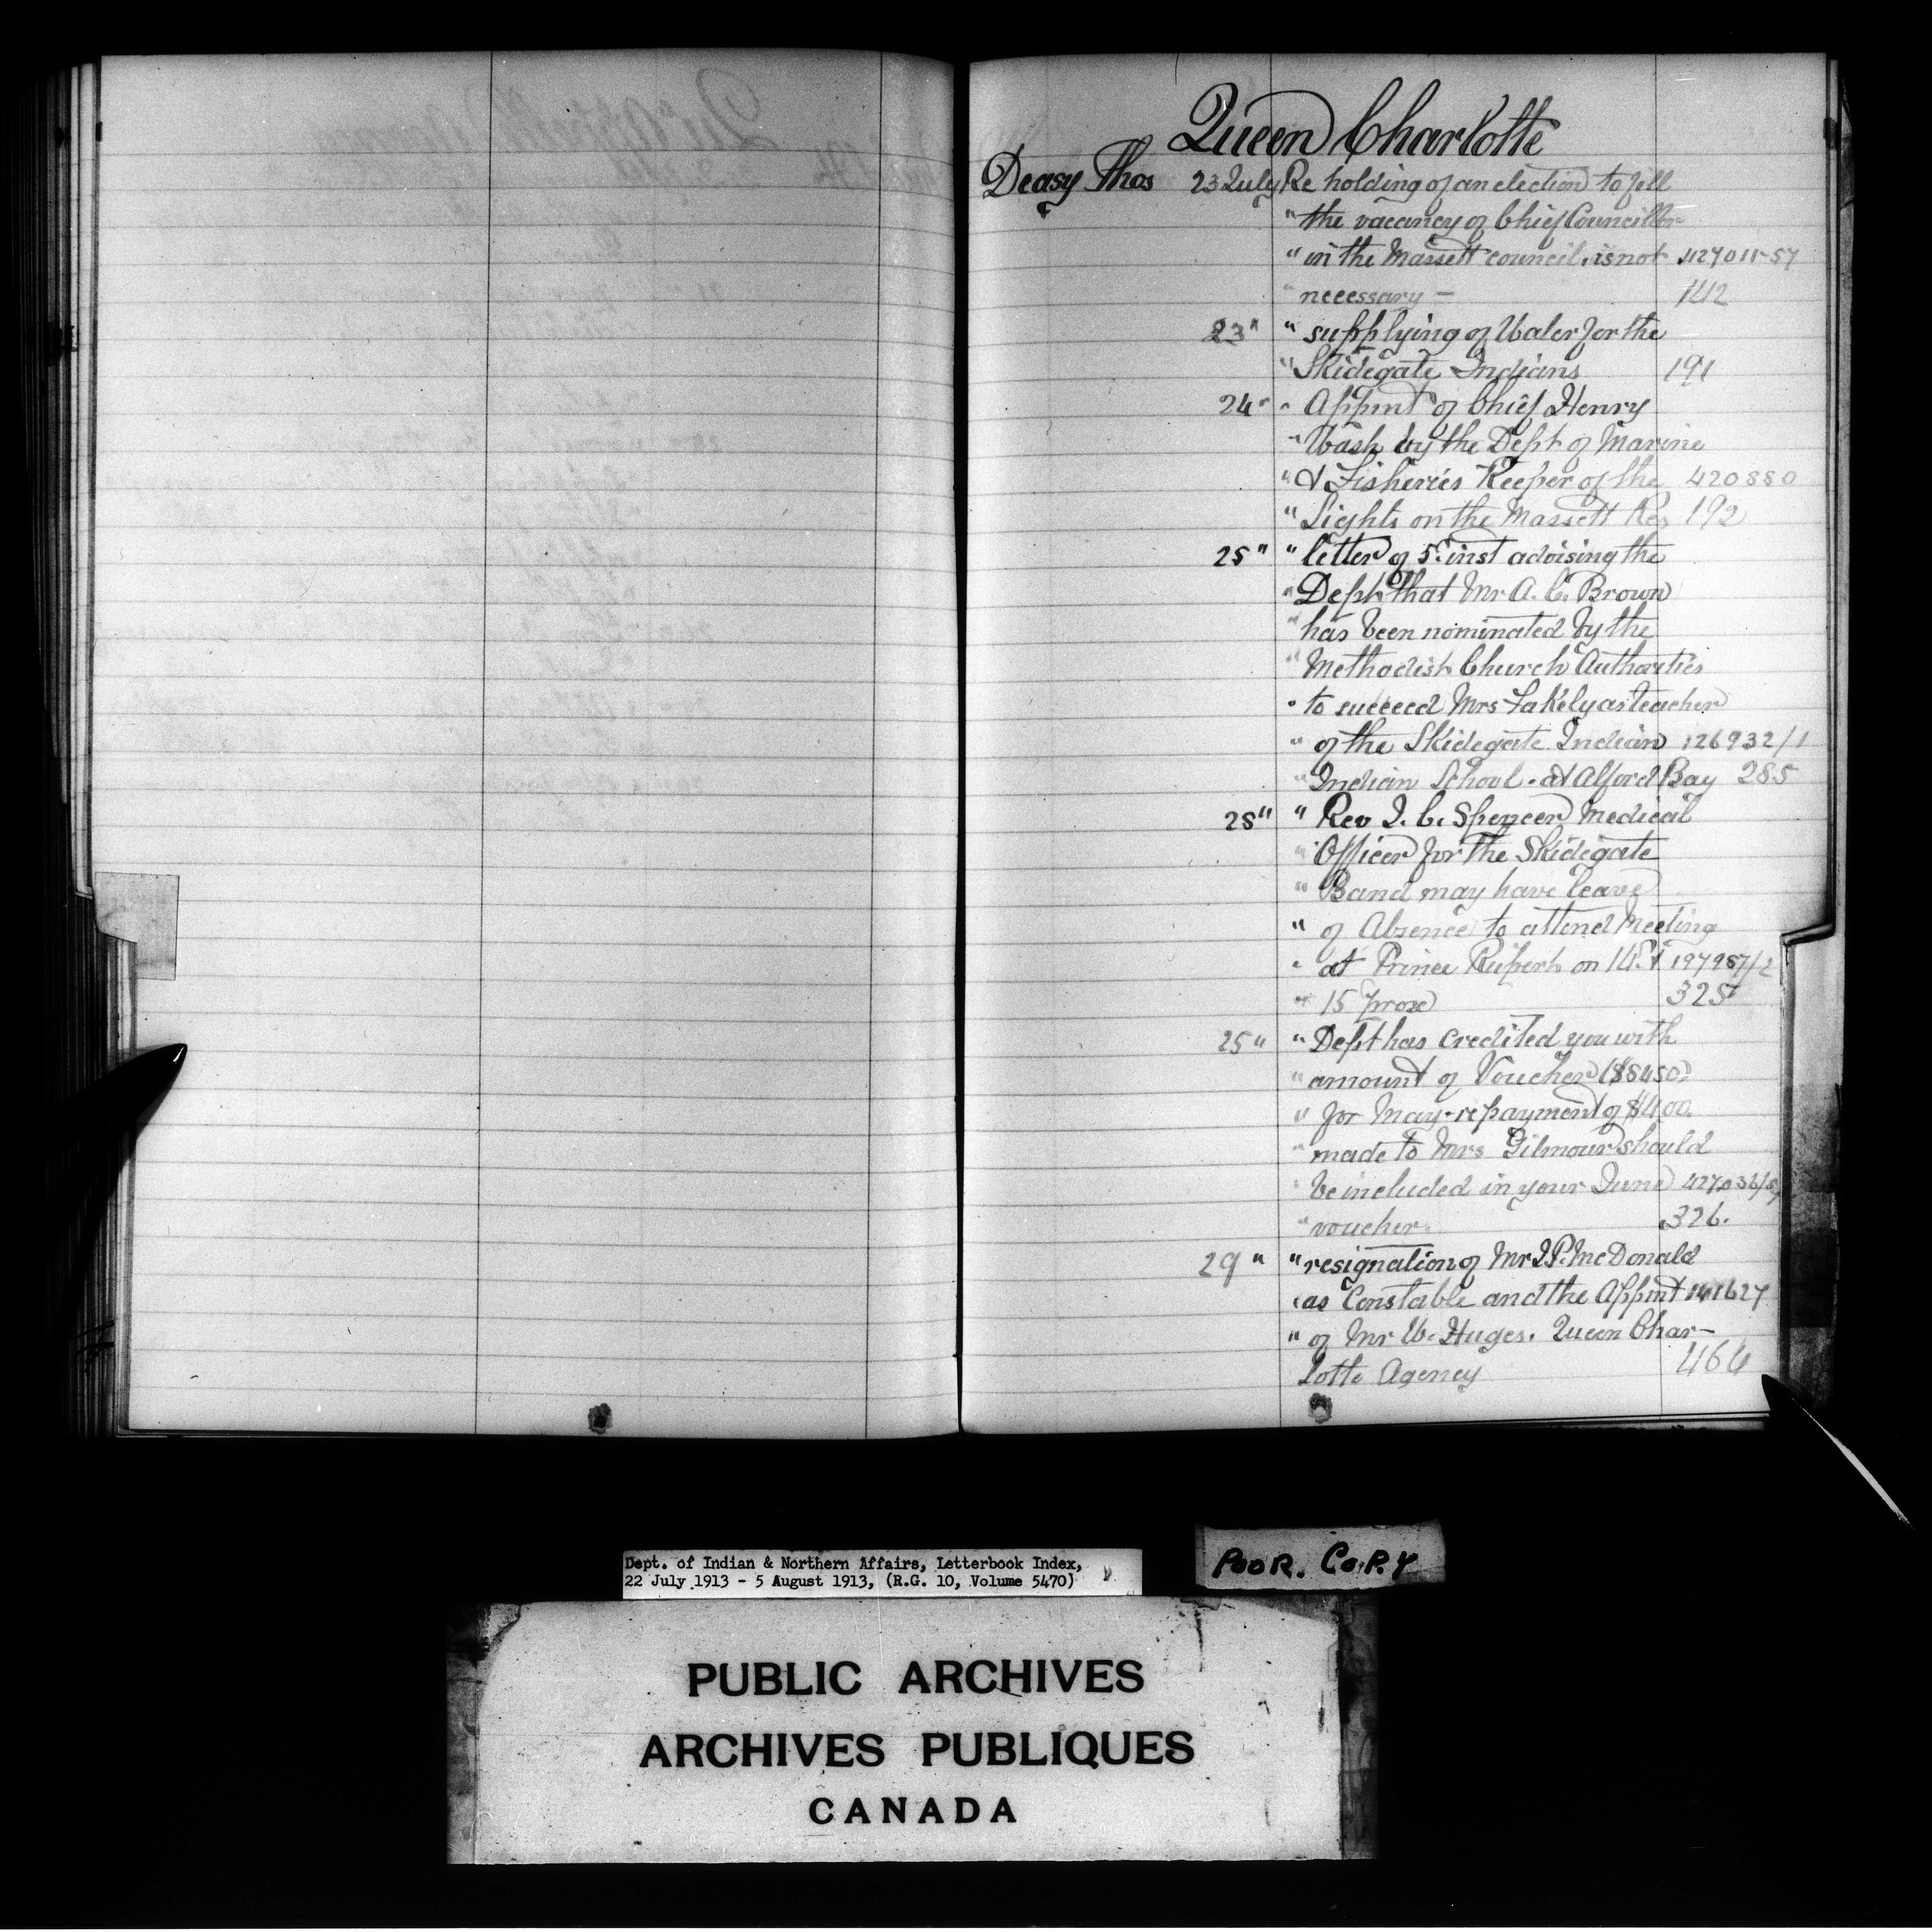 Queen Charlotte
Deasy Thos 23 July Re holding of an election to fill
" the vacancy of Chief Councillor
" in the Massett council, is not 427011-57
" necessary — 142
23 " " supplying of Water for the
" Skidegate Indians 191
24 " " Appmt of Chief Henry
" Wash by the Dept of Marine
" & Fisheries Keeper of the 420880
" Lights on the Massett Res 192
25 " " letter of 5th inst advising the
" Dept that Mr A. C. Brown
" has been nominated by the
" Methodist Church Authorities
" to succeed Mrs Lakely as teacher
" of the Skidegate Indian 126932/1
" Indian School. at Alford Bay 285
25 " " Rev J. C. Spencer Medical
" Officer for the Skidegate
" Band may have leave
" of Absence to attend Meeting
" at Prince Rupert on 14 & 197957/2
" 15 prox 325
25 " " Dept has credited you with
" amount of Voucher ($8450)
" for May - repayment of $400
" made to Mrs Gilmour should
" be included in your June
" voucher. 326.
29 " " resignation of Mr J.P. McDonald
" as Constable and the Appmt 141627
" of Mr W. Huges. Queen Char-
lotte Agency 464
Dept. of Indian & Northern Affairs, Letterbook Index,
22 July 1913 - 5 August 1913, (R.G. 10, Volume 5470)
POOR. COPY
PUBLIC ARCHIVES
ARCHIVES PUBLIQUES
CANADA